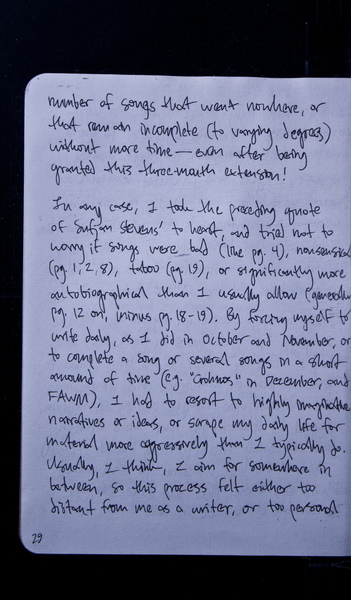 number of songs that went nowhere, or
that remain incomplete (to varying degrees)
without more time — even after being
granted this three-month extension!
In any case, I took the preceding quote
of Sufjan Stevens' to heart, and tried not to
worry if songs were bad (like pg. 4), nonsensical
(pg. 1, 2, 8), taboo (pg. 19), or significantly more
autobiographical than I usually allow (generally
pg. 12 on, minus pg. 18-19). By forcing myself to
write daily, as I did in October and November, or
to complete a song or several songs in a short
amount of time (e.g. in December, and
FAWM), I had to resort to highly imaginative
narratives or ideas, or scrape my daily life for
material more aggressively than I typically do.
Usually, I think, I aim for somewhere in
between, so this process felt either too
distant from me as a writer, or too personal
29